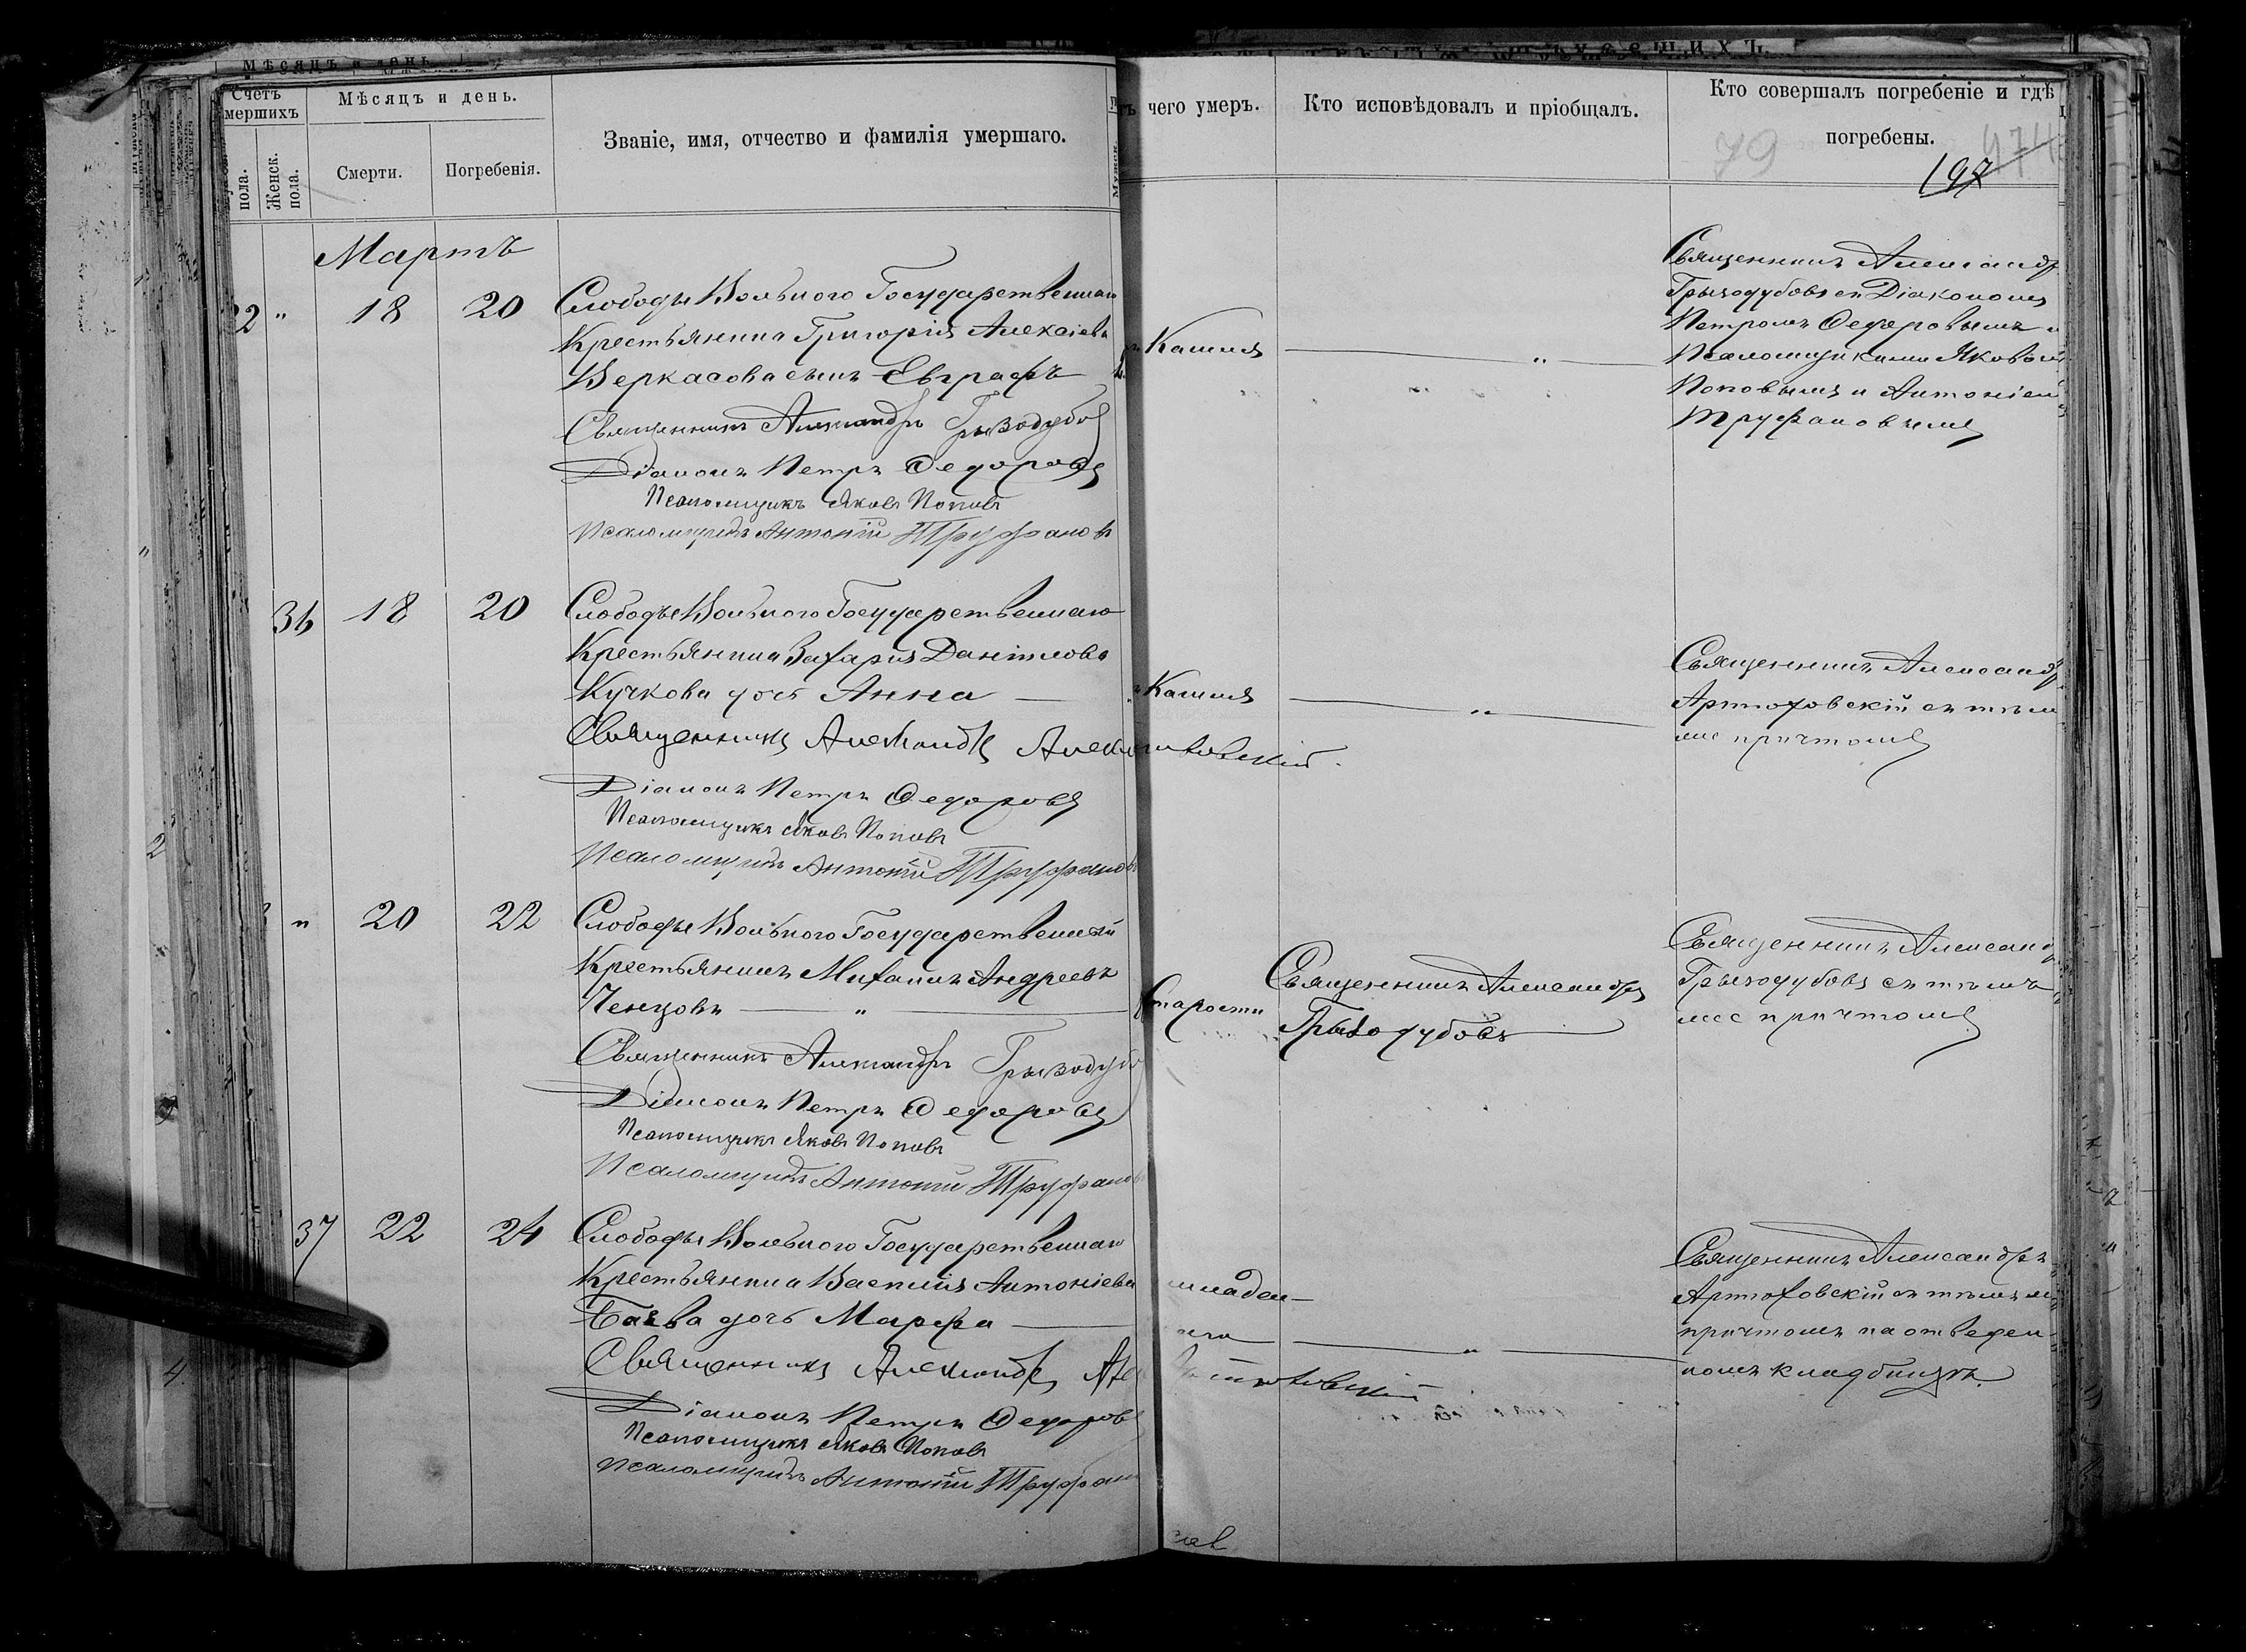 Счетъ
мершихъ
Мѣсяцъ и день.
Званіе, имя, отчество и фамилія умершаго.
пола.
Женск.
пола.
Смерти.
Погребенія.
чего умеръ.
Кто исповѣдовалъ и пріобщалъ.
Кто совершалъ погребеніе и гдѣ
погребены.
79
Мартъ
18 20 Слободы Вольного Государственнаго
Крестьянина Григорія Алексіева
Веркасова сынъ Евграфъ
Священникъ Александръ Грызодубов
Діаконъ Петръ Федоровъ
Псаломщикъ Яковъ Поповъ
Псаломщикъ Антоній Труфановъ
Кашля
Священникъ Александръ
Грызодубовъ съ Діакономъ
Петромъ Федоровымъ и
Псаломщиками Яковом
Поповымъ и Антоніем
Труфановымъ
36 18 20 Слободы Вольного Государственнаго
Крестьянина Захарія Данілова
Кучкова дочь Анна
Священникъ Александръ
Діаконъ Петръ Федоровъ
Псаломщикъ Яковъ Поповъ
Псаломщикъ Антоній Труфановъ
Кашля
Священникъ Александр
Артюховскій съ тѣм
же причтомъ
20 22 Слободы Вольного Государственный
Крестьянинъ Михаилъ Андреевъ
Ченцовъ
Священникъ Александръ Грызодубо
Діаконъ Петръ Федоровъ
Псаломщикъ Яковъ Поповъ
Псаломщикъ Антоній Труфановъ
Старости
Священникъ Александръ
Грызодубовъ
Священникъ Александ
Грызодубовъ съ тѣмъ
же причтомъ
37 22 24 Слободы Вольного Государственнаго
Крестьянина Василія Антоніева
Баева дочь Марфа
Священникъ Александръ
Діаконъ Петръ Федоровъ
Псаломщикъ Яковъ Поповъ
Псаломщикъ Антоній Труфан
младен
Священникъ Александръ
Артюховскій съ тѣмъ же
причтомъ на отведен
номъ кладбищѣ.